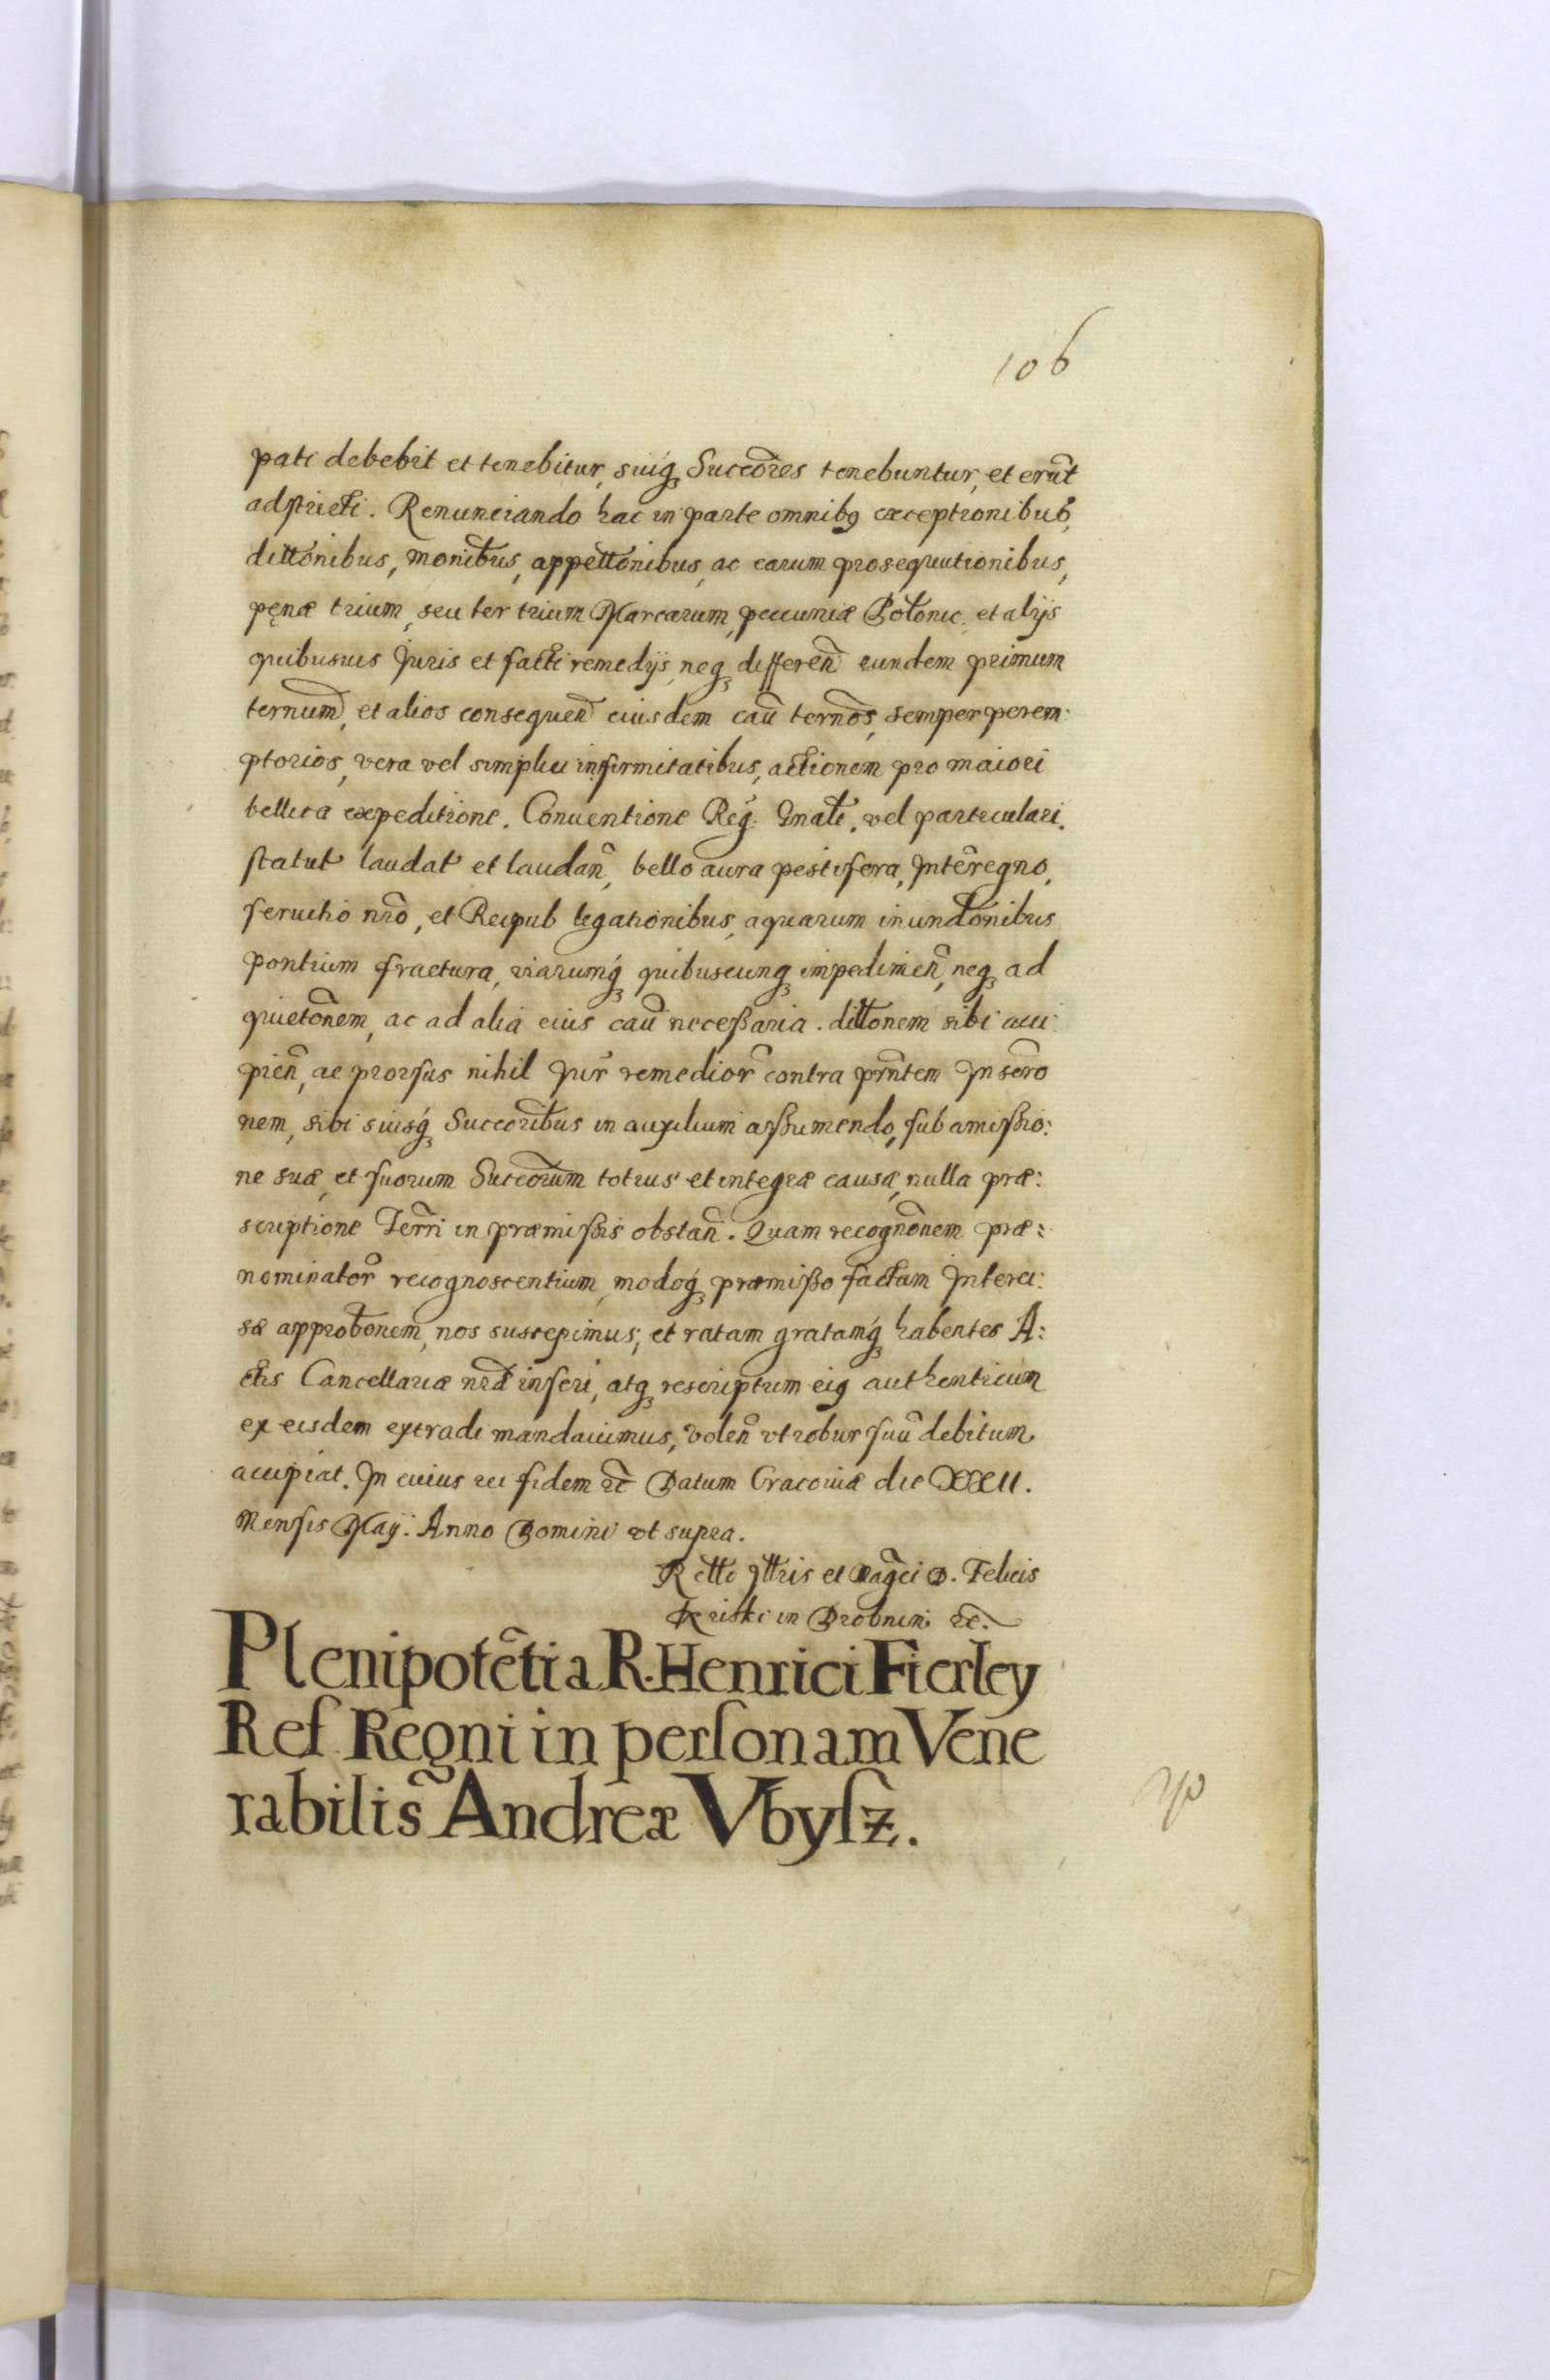 106
pati debebit et tenebitur, suiqꜗ Succõres tenebuntur, et erũt
adstricti. Renunciando hac in parte omnibꝰ exceptionibus,
dilt̃onibus, monit̃bus, appellt̃onibus, ac earum prosequutionibus,
pęnæ trium, seu ter trium Marcarum, pecuniæ Polonic. et alijs
quibusuis Juris et facti remedijs, neqꜗ differeñ eundem primum
ternum̃, et alios consequeñ eiusdem cau͂ terno͂s, semper perem:
ptorios, vera vel simplici infirmitatibus, actionem pro maiori
bellica expeditione. Conuentione Reg. Gnali͂. vel particulari.
statut͂ laudat͂ et laudañ, bello aura pestifera, Inte͂rregno,
seruitio nr͂o, et Reipub legationibus, aquarum inundt͂onibus
pontium fractura, viarumqꜗ quibuscunqꜗ impedimeñ, neqꜗ ad
quieto͂nem, ac ad alia eius cau͂ necessaria. dilt͂onem sibi acci
pieñ, ac prorsus nihil Jur͂ remedior͂ contra pr͂ntem Inscr͂o
nem, sibi suisqꜗ Succorib͂us in auxilium assumendo, sub amissio:
ne suæ, et suorum Succor͂um totius et integræ causæ, nulla præ:
scriptione Ter͂ri in præmissis obstañ. Quam recogno͂nem præ:
nominator͂ recognoscentium, modoqꜗ præmisso factam Interci:
sæ approbt͂onem, nos suscepimus, et ratam gratamqꜗ habentes A:
ctis Cancellariæ nr͂æ inseri, atqꜗ rescriptum eiꝰ authenticum
ex eisdem extradi mandauimus, voleñ vt robur suu͂ debitum
accipiat. In cuius rei fidem etc͂ Datum Cracouiæ die XXII.
Mensis Maij. Anno Domini vt supra.
R ett͂o Jll͂tris et Mag͂ci D. Felicis
Kriski in Drobnin etc͂.
Plenipote͂tia R. Henrici Fierley
Ref Regni in personam Vene
rabilis͂ Andreæ Vbysz.